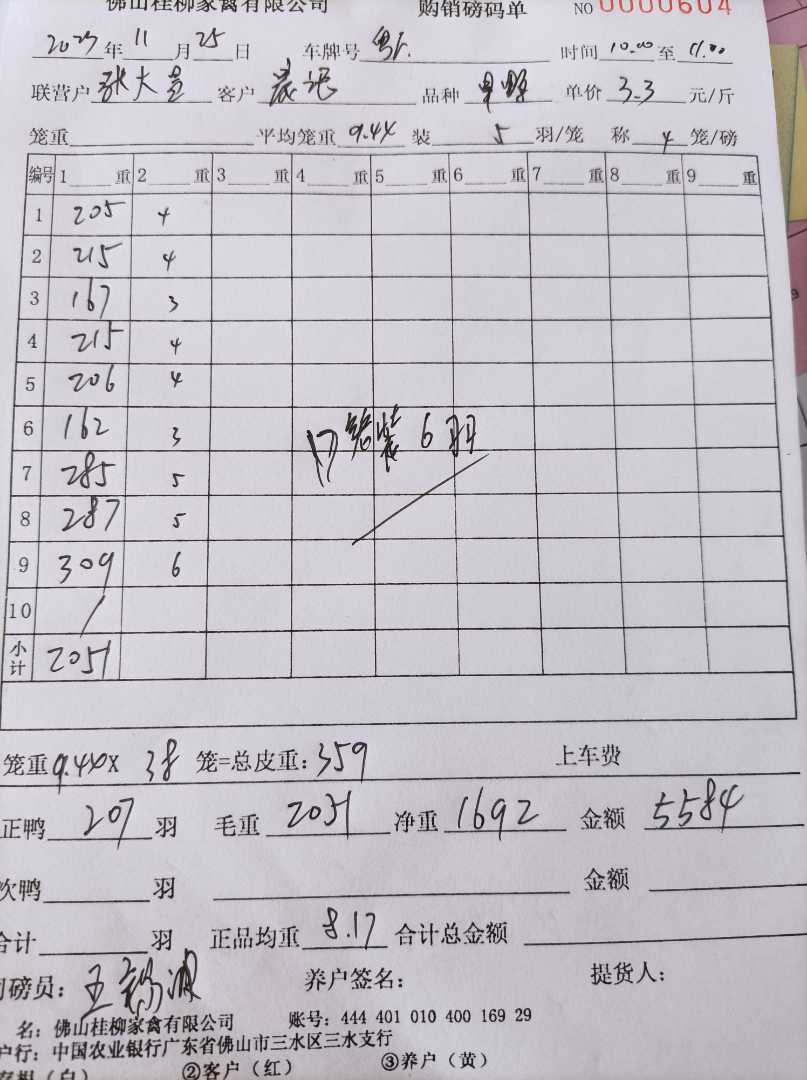 佛山桂柳家禽有限公司 购销磅码单 NO 0000604
2023年 11月 25日 车牌号 粤A. 时间 10.00 至 11.00
联营户 张大 客户 晨记 品种 单价 3.3 元/斤
笼重 平均笼重 9.44 装 5 羽/笼 称 4 笼/磅
编号 1 重 2 重 3 重 4 重 5 重 6 重 7 重 8 重 9 重
1 205 4
2 215 4
3 167 3
4 215 4
5 206 4
6 162 3 17笼装6羽
7 285 5
8 287 5
9 309 6
10 /
小计 2051
笼重 9.44 X 38 笼=总皮重: 359 上车费
正鸭 207 羽 毛重 2051 净重 1692 金额 5584
次鸭 羽 金额
合计 羽 正品均重 8.17 合计总金额
司磅员: 王 养户签名: 提货人:
名: 佛山桂柳家禽有限公司 账号: 444 401 010 400 169 29
户行: 中国农业银行广东省佛山市三水区三水支行
存根(白) ②客户(红) ③养户(黄)